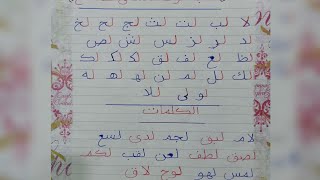 لا لب لت لث لج لح لخ
لد لر لز لس لش لص
لظ لع لف لق لك لك لك
لك لل لم لن لهـ لهـ له
لو لى للا
الكلمات
لام لبق لجم لدى لسع
لصق لطف لعن لقب لكد
لمس لهو لوح لاق